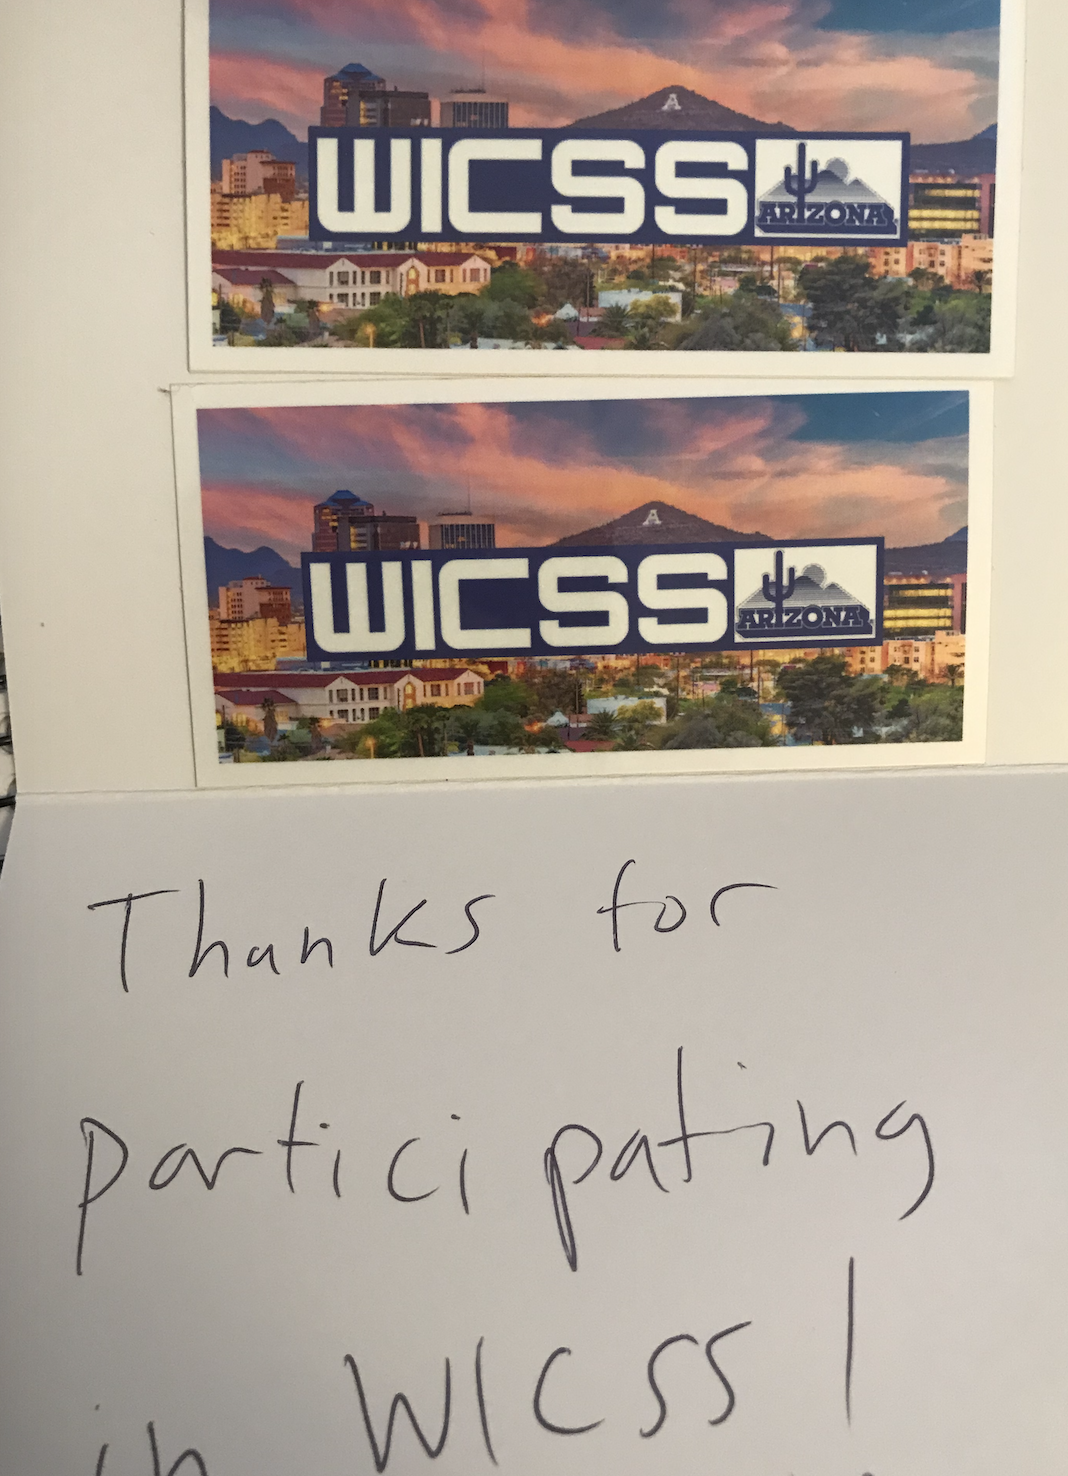 A
WICSS ARIZONA
A
WICSS ARIZONA
Thanks for
participating
in WICSS!